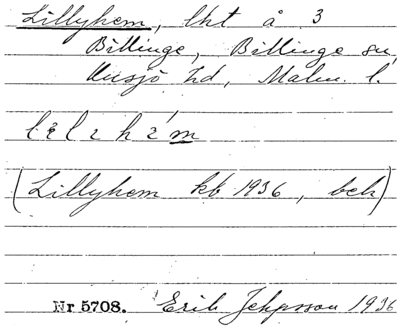 Lillyhem, lht å 3
Billinge, Billinge sn,
Onsjö hd, Malm. l.
(Lillyhem kb 1936, beb)
Nr 5708. Erik Jeppsson 1936